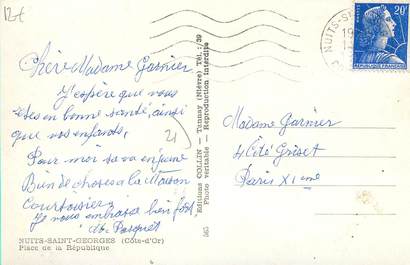 12€
NUITS-S
19
20F
POSTES
REPUBLIQUE FRANÇAISE
Chère Madame Garnier
J'espère que vous
êtes en bonne santé, ainsi
que vos enfants,
Pour moi sa va en
Bien de choses a la Maison
Je vous embrasse bien fort
21
NUITS-SAINT-GEORGES (Côte-d'Or)
Place de la République
Editions COLLIN — Tannay (Nièvre) Tél. : /39
Photo véritable — Reproduction interdite
Madame Garnier
4 Cité Griset
Paris XI ème